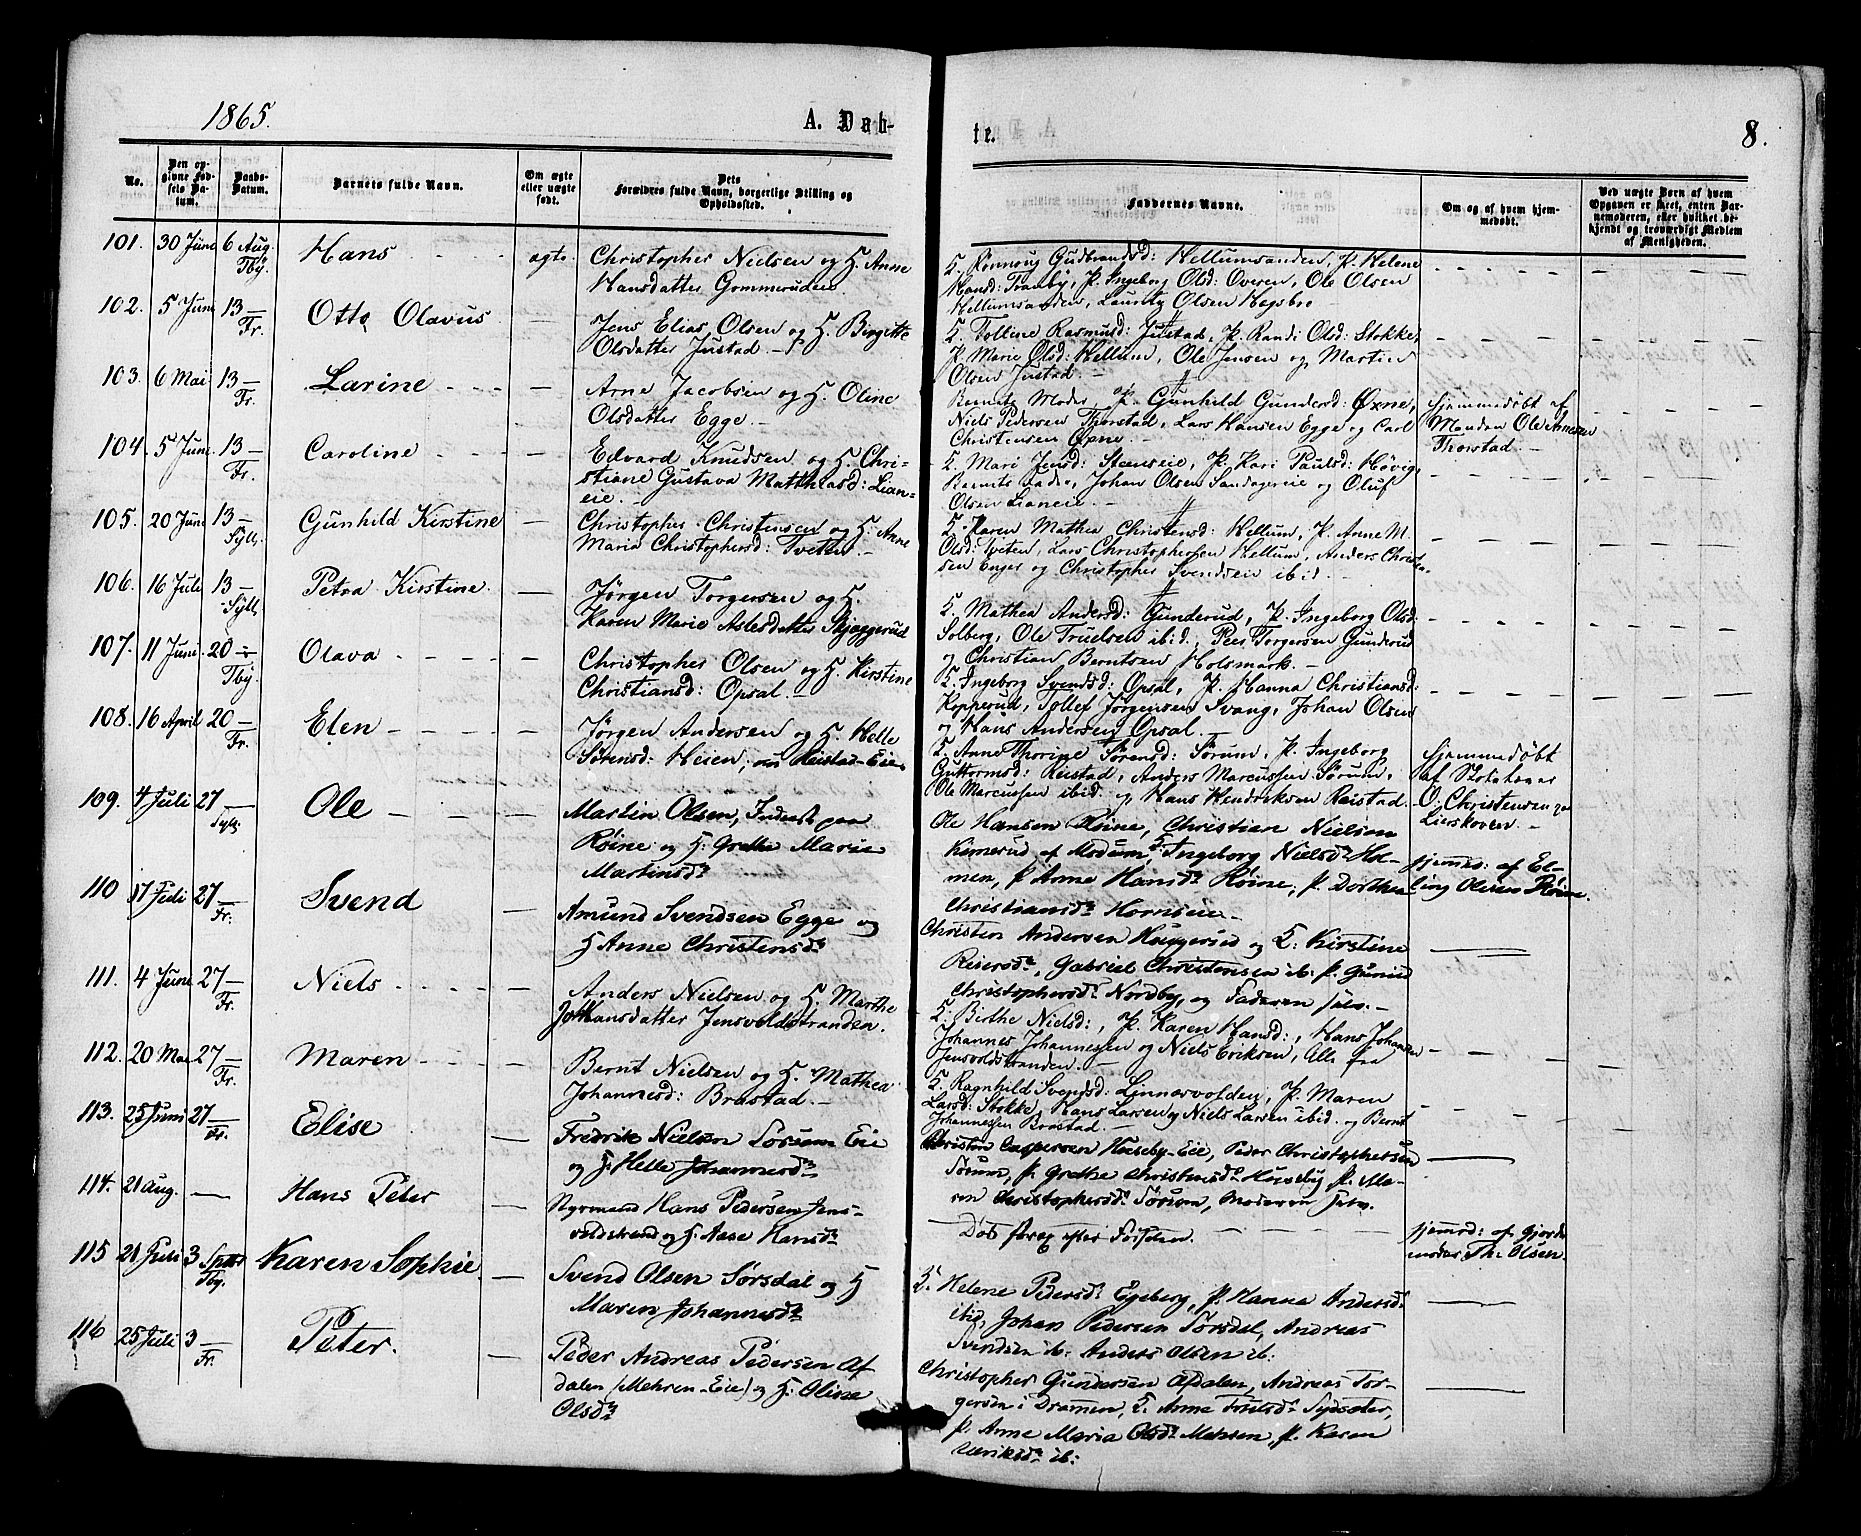 1865.
A. Døb-
te.
8.
No.
Den opgivne Fødsels Datum.
Daabs-Datum.
Barnets fulde Navn.
Om ægte eller uægte født.
Dets Forældres fulde Navn, borgerlige Stilling og Opholdssted.
Faddernes Navne.
Om og af hvem hjemmedøbt.
Ved uægte Børn af hvem Opgaven er skeet, enten Barnemoderen, eller hvilket bekjendt og troværdigt Medlem af Menigheden.
101. 30 Juni 6 Aug. Tby. Hans ægte.
Christopher Nielsen og H. Anne
Hansdatter Gommerudeie.
Gudbrandsd: Hellumsanden, P. Helene
Hansd: Tranby, P. Ingeborg Olsd: Overen, Ole Olsen
Hellumsanden, Lauritz Olsen Hegsbro
102. 5 Juni 13 — Fr. Otto Olavus —
Jens Elias Olsen og H. Birgitte
Olsdatter Justad. —
K. Tolline Rasmusd: Justad, P. Randi Olsd: Stokke,
P. Marie Olsd: Hellum, Ole Jensen og Martin
Olsen Justad. —
103. 6 Mai 13 — Fr. Larine —
Arne Jacobsen og H. Oline
Olsdatter Egge. —
Barnets Moder, P. Gunhild Gundersd: Øxne,
Niels Pedersen Thorstad, Lars Hansen Egge og Carl
Christensen Øxne. —
Hjemmedøbt af
Manden Ole Arnesen
Thorstad. —
104. 5 Juni 13 — Fr. Caroline —
Edvard Knudsen og H. Chri-
stiane Gustava Matthiasd: Lian-
eie. —
K. Mari Jensd: Stenseie, P. Kari Paulsd: Høvig,
Barnets Fader, Johan Olsen Sandagereie og Oluf
Olsen Lianeie. —
105. 20 Juni 13 — Syll. Gunhild Kirstine —
Christopher Christensen og H. Anne
Maria Christophersd: Tveten. —
K. Karen Mathea Christensd: Hellum, P. Anne M.
Olsd: Tveten, Lars Christophersen Hellum, Anders Christen-
sen Enger og Christopher Svendsen ibid. —
106. 16 Juli 13 — Syll. Petra Kirstine —
Jørgen Torgersen og H.
Karen Marie Aslesdatter Skjæggerud
K. Mathea Andersd: Gunderud, P. Ingeborg Olsd:
Solberg, Ole Truelsen ibid., Peer Torgersen Gunderud
og Christian Berntsen Holsmark. —
107. 11 Juni 20 — Tby. Olava —
Christopher Olsen og H. Kirstine
Christiansd: Opsal. —
K. Ingeborg Svendsd: Opsal, P. Hanna Christiansd:
Kopperud, Tollef Jørgensen Svang, Johan Olsen
og Hans Andersen Opsal. —
108. 16 April 20 — Fr. Elen —
Jørgen Andersen og H. Helle
Sørensd: Heien, Reistad-Eie.
K. Anne Thorine Sørensd: Sørum, P. Ingeborg
Guttormsd: Reistad, Anders Marcussen Sørum,
Ole Marcussen ibid. og Hans Hendriksen Reistad. —
Hjemmedøbt
af
O. Christensen paa
Lierskoven. —
109. 4 Juli 27 — Sylg. Ole —
Martin Olsen, Inderst paa
Røine og H. Grethe Marie
Martinsdr
Ole Hansen Røine, Christian Nielsen
Kimerud af Modum, K. Ingeborg Nielsdr Hol-
men, P. Anne Hansdr Røine, P. Dorthea
Christiansdr Hornseie —
Hjemmed: af El-
ling Olesen Røine.
110 17 Juli 27 — Fr. Svend —
Amund Svendsen Egge og
H Anne Christensdr
Christen Andersen Houggerud og K. Kirstine
Reiersdr, Gabriel Christensen ib: P. Gunild
Christophersdr Nordby, og Faderen selv. —
111. 4 Juni 27 — Fr. Niels —
Anders Nielsen og H. Marthe
Johansdatter Jensvoldstranden.
K. Birthe Nielsd:, P. Karen Hansd:, Hans Johansen
Johannes Johannessen og Niels Eriksen, Alle fra
Jensvoldstranden. —
112. 20 Mai 27 — Fr. Maren —
Bernt Nielsen og H. Mathea
Johannesd: Brastad. —
K. Ragnhild Svendsd: Linnesvolden, P. Maren
Larsd: Stokke, Hans Larsen og Niels Larsen ibid. og Bernt
Johannesen Brastad. —
113. 25 Juni 27 — Fr. Elise —
Fredrik Nielsen Sørum Eie
og H. Helle Johannesdr
Christen Caspersen Huseby-Eie, Peder Christophersen
Sørum, P. Grethe Christensdr Huseby, P. Ma-
ren Christophersdr Sørum, Moderen selv.
114. 21 Aug. — Hans Peter —
Styrmand Hans Pedersen Jens-
voldstrand og H. Aase Hansdr
— Død strax efter Fødselen. —
Hjemmd: af Gjorde-
moder Th. Olsen.
115 21 Juli 3 Septbr Tby. Karen Sophie. —
Svend Olsen Sørsdal og H
Maren Johannesdr
K. Helene Pedersdr Egeberg, P. Hanna Andersdr
ibid, Johan Pedersen Sørsdal, Andreas
Svendsen ib. Anders Olsen ib:
116 25 Juli 3 — Fr. Peter. —
Peder Andreas Pedersen Af
dalen (Mehren-Eie) og H. Oline
Olsdr
Christopher Gundersen Afdalen, Andreas Tor-
gersen i Dramen, K. Anne Sydsæter,
P. Anne Maria Olsdr Mehren, P. Karen
Ulriksdr ib: